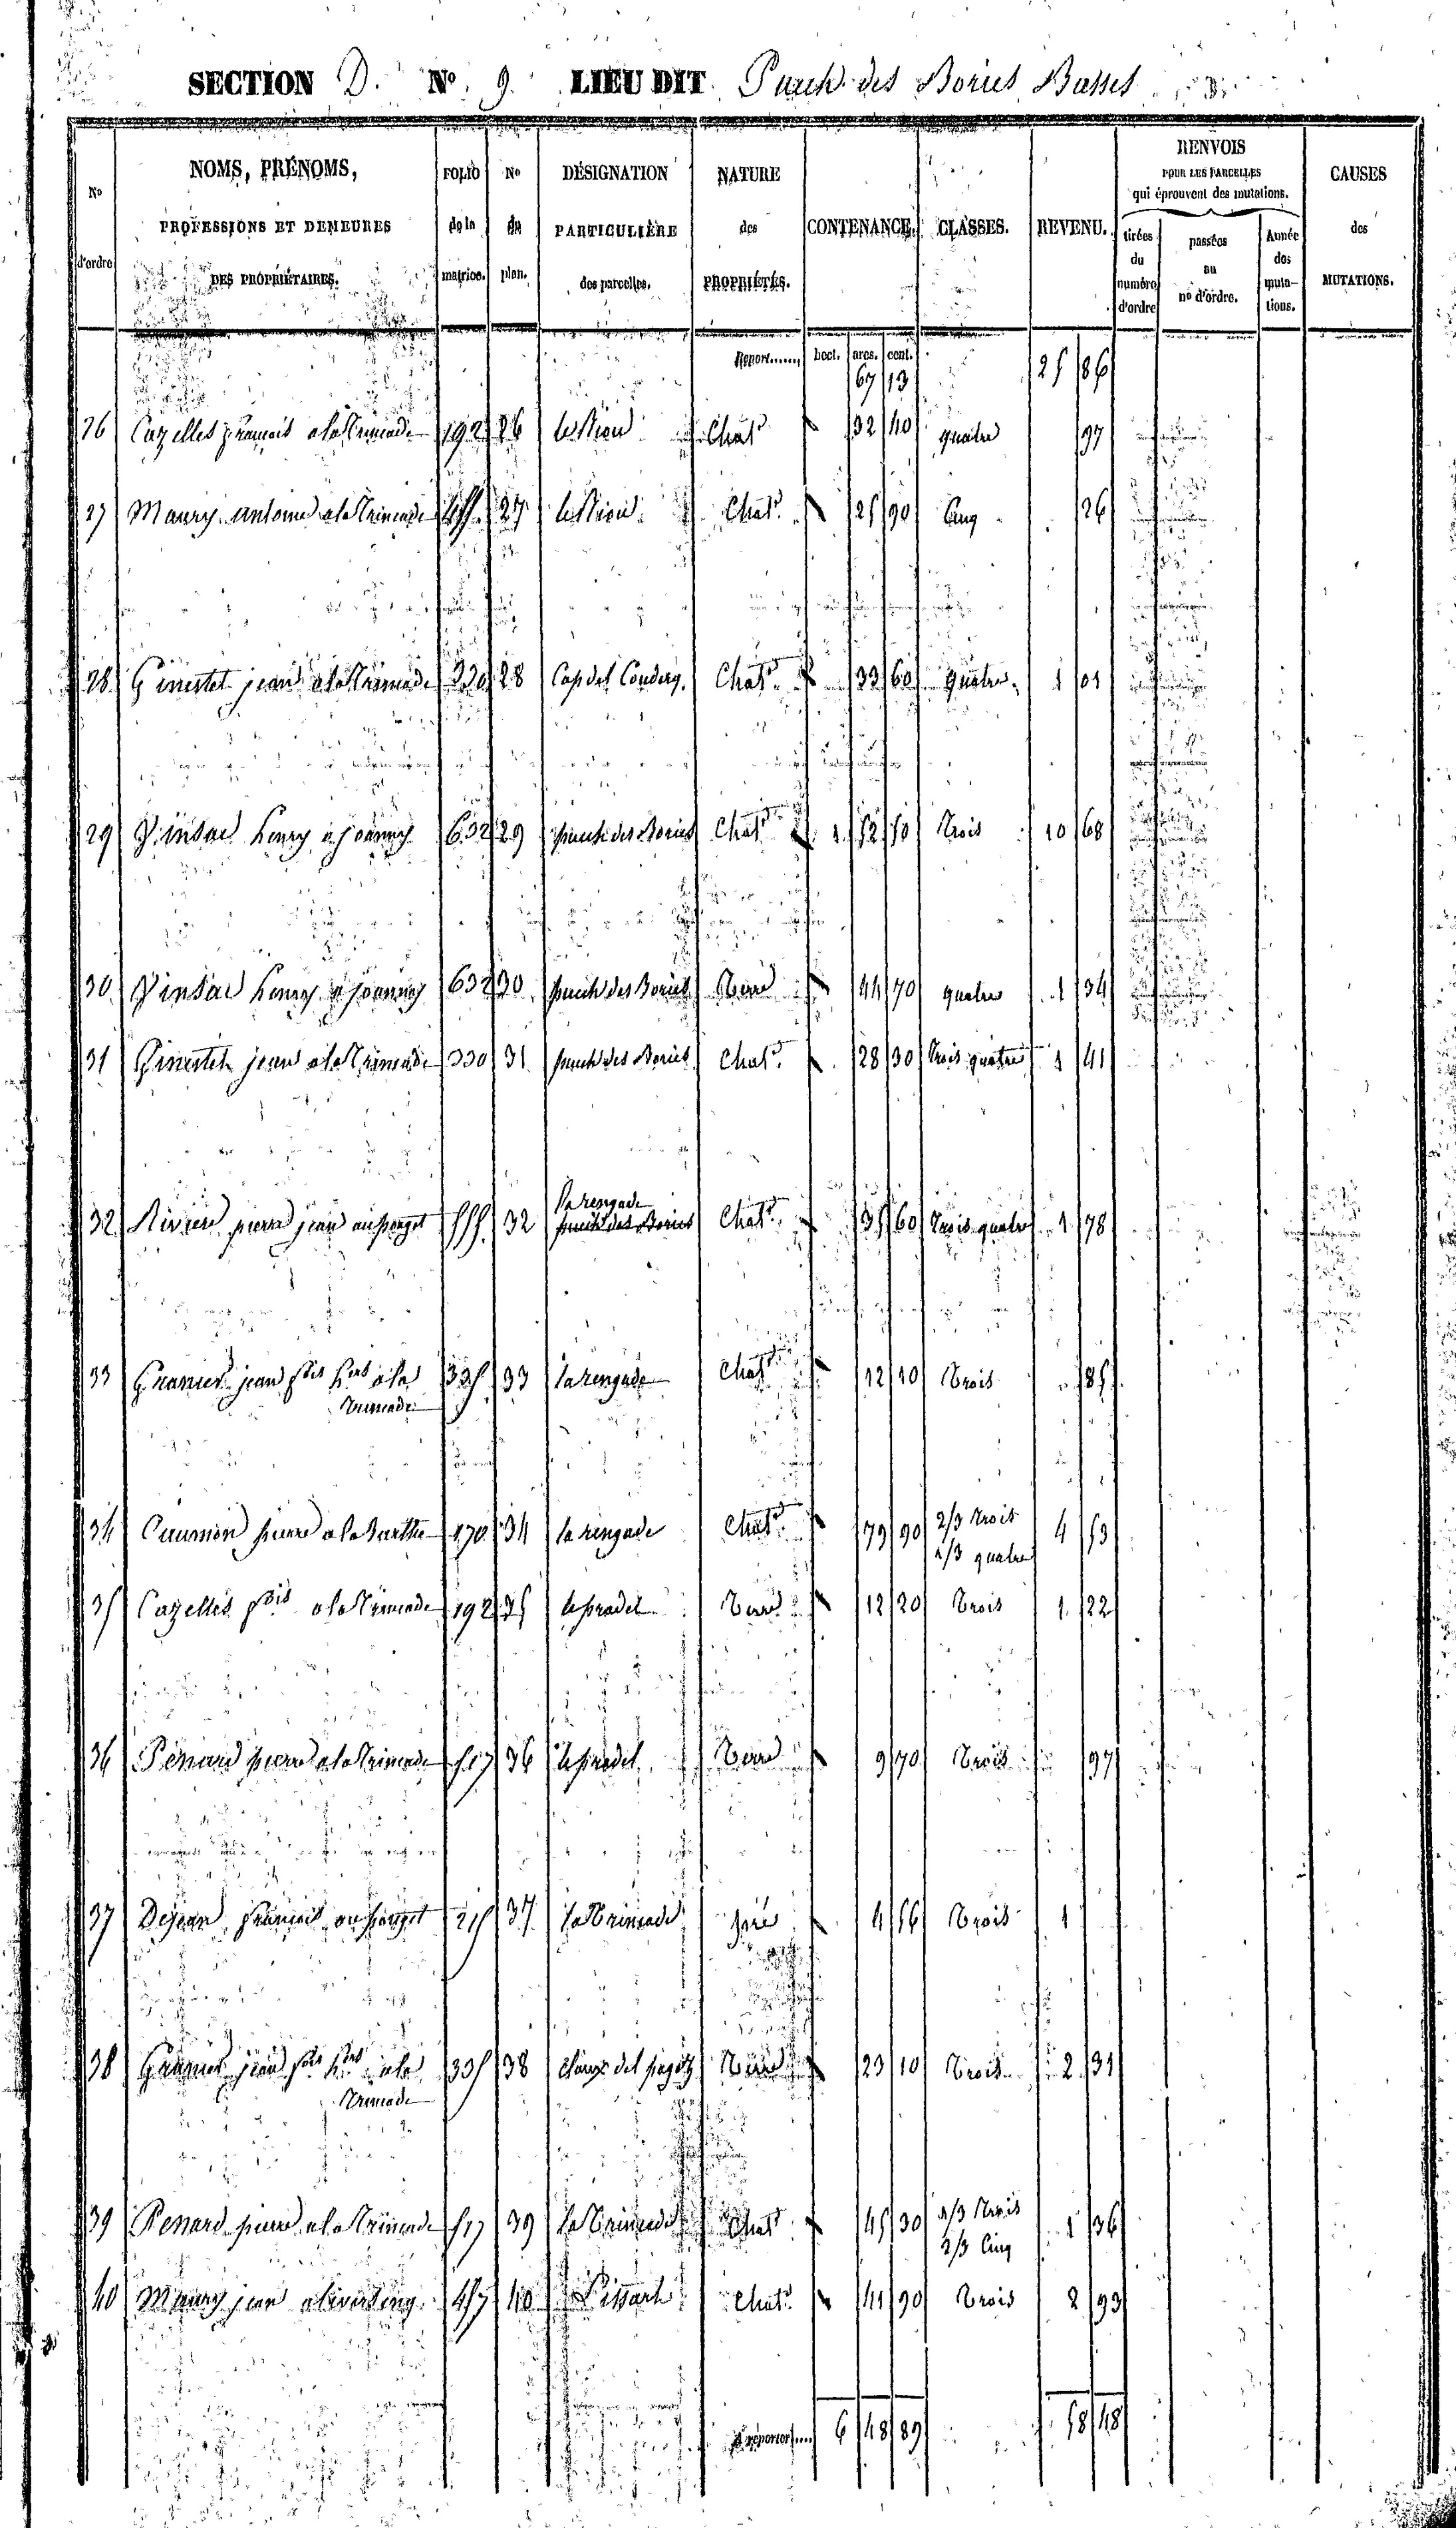 SECTION D. No. 9. LIEU DIT Puech des Bories Basses
No d'ordre
NOMS, PRÉNOMS, PROFESSIONS ET DEMEURES DES PROPRIÉTAIRES.
FOLIO de la matrice.
No du plan.
DÉSIGNATION PARTICULIÈRE des parcelles.
NATURE des PROPRIÉTÉS.
CONTENANCE.
CLASSES.
REVENU.
RENVOIS POUR LES PARCELLES qui éprouvent des mutations.
tirées du numéro d'ordre
passées au no d'ordre.
Année des muta-tions.
CAUSES des MUTATIONS.
Report...... hect. ares. cent.
67 13 25 86
26 Cazelles françois a la Trivade 192 26 Chat. 32 40 quatre 97
27 Maury antoine a la Trivade 27 Chat. 25 90 Cinq 26
28 Ginestet jean a la Trivade 330 28 Cap del Couderq. Chat. 33 60 quatre 1 01
29 Vinsac henry a joanny 632 29 puech des Bories Chat. 1 52 50 Trois 10 68
30 Vinsac henry a joanny 632 30 puech des Bories Terre 44 70 quatre 1 34
31 Ginestet jean a la Trivade 330 31 puech des Bories Chat. 28 30 trois quatre 1 41
la rengade
32 Rivière pierre jean au pouget 555 32 puech des Bories Chat. 35 60 trois quatre 1 78
33 Granier jean fois a la 335 33 la rengade Chat. 12 10 Trois 85
Trivade
34 Caumon pierre a la Barthe 170 34 la rengade Chat. 79 90 2/3 trois 4 53
1/3 quatre
35 Cazelles fois a la Trivade 192 35 le pradel Terre 12 20 Trois 1 22
36 Renard pierre a la Trivade 517 36 le pradel Terre 9 70 Trois 97
37 Dejean françois au pouget 215 37 la Trivade pré 4 56 Trois 1
38 Granier jean fois a la 335 38 Terre 23 10 Trois 2 31
Trivade
39 Renard pierre a la Trivade 517 39 la Trivade Chat. 45 30 1/3 Trois 1 36
2/3 Cinq
40 Maury jean 457 40 Chat. 41 90 Trois 2 93
A reporter.... 6 48 89 58 48